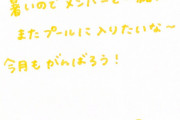 暑いのでメンバーと
またプールに入りたいな〜
今月もがんばろう！